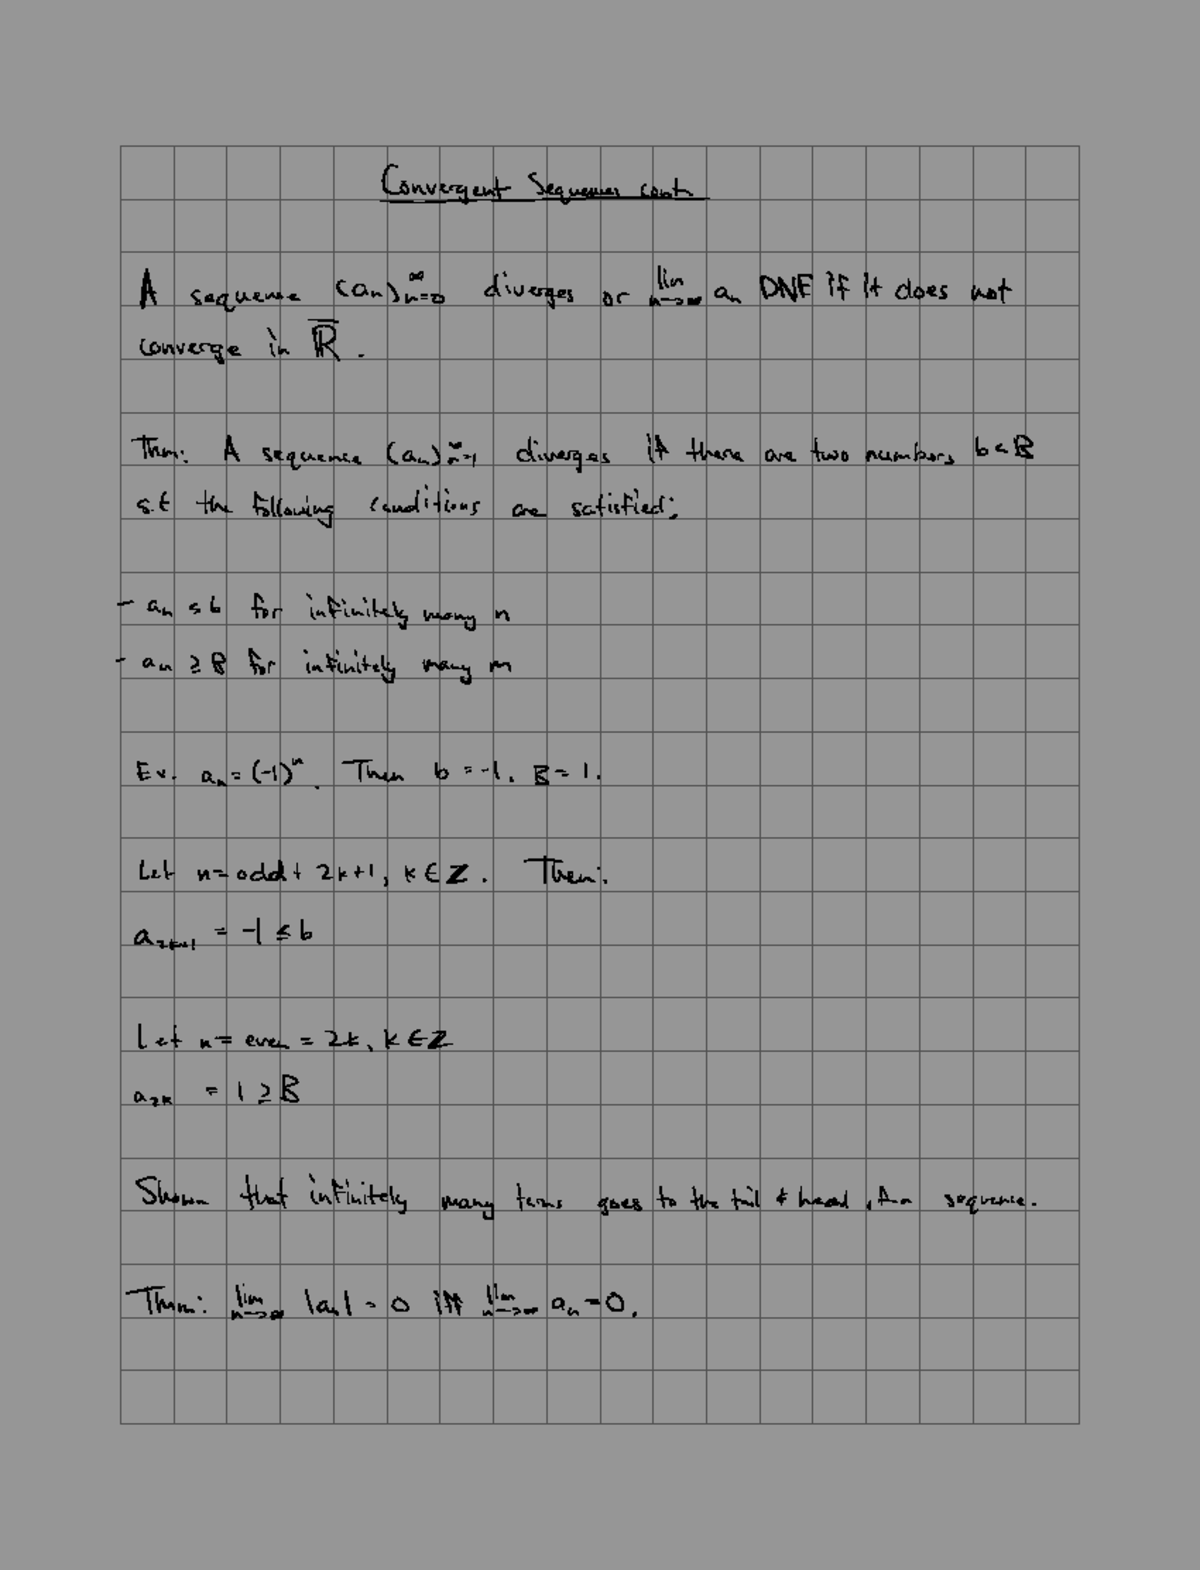 Convergent Sequences cont.
A sequence (aₙ)ₙ₌₀^∞ diverges or lim n→∞ aₙ DNE if it does not
converge in ℝ̅.
Thm: A sequence (aₙ)ₙ₌₁^∞ diverges if there are two numbers b < B
s.t the following conditions are satisfied:
- aₙ ≤ b for infinitely many n
- aₙ ≥ B for infinitely many m
Ex. aₙ = (-1)ⁿ. Then b = -1. B = 1.
Let n = odd + 2k+1, k ∈ ℤ. Then:
a₂ₖ₊₁ = -1 ≤ b
Let n = even = 2k, k ∈ ℤ
a₂ₖ = 1 ≥ B
Shown that infinitely many terms goes to the tail & head, sequence.
Thm: lim n→∞ |aₙ| = 0 iff lim n→∞ aₙ = 0.